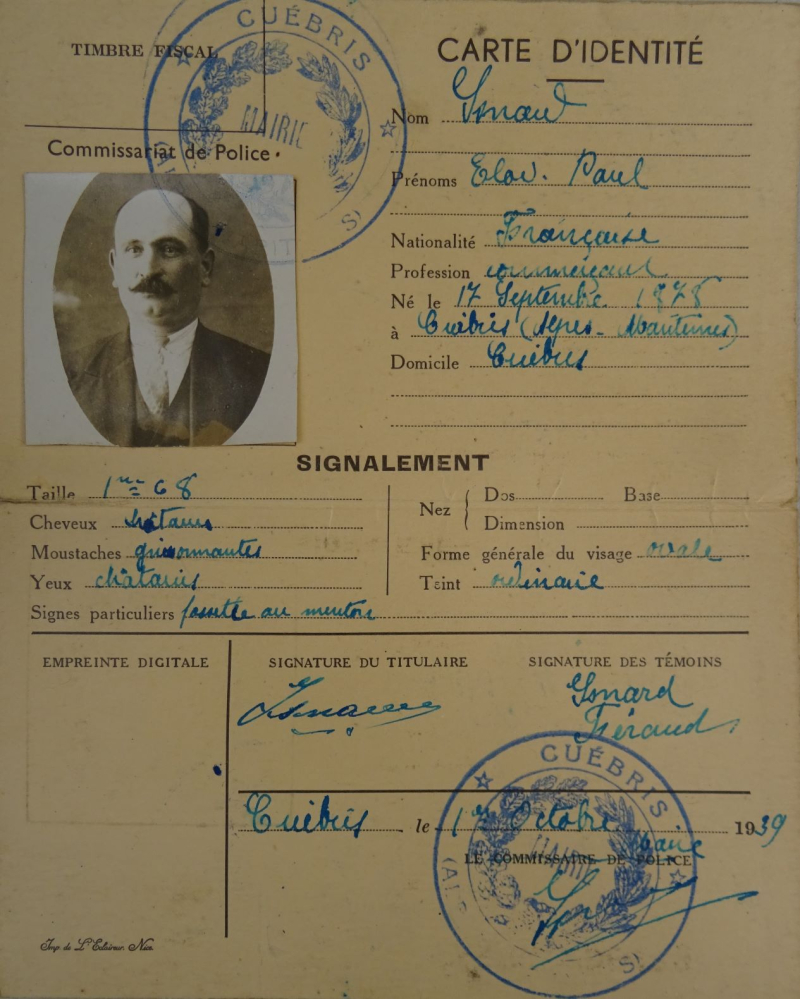 TIMBRE FISCAL
CUÉBRIS
MAIRIE
Commissariat de Police
CARTE D'IDENTITÉ
Nom Isnard
Prénoms Eloi. Paul
Nationalité Française
Profession commerçant
Né le 17 Septembre 1878
à Cuébris (Alpes-Maritimes)
Domicile Cuébris
SIGNALEMENT
Taille 1m 68
Cheveux châtains
Moustaches grisonnantes
Yeux châtains
Signes particuliers fossette au menton
Nez
Dos
Base
Dimension
Forme générale du visage ovale
Teint ordinaire
EMPREINTE DIGITALE
SIGNATURE DU TITULAIRE
Isnard
SIGNATURE DES TÉMOINS
Isnard
Féraud
Cuébris le 1er Octobre 1939
Maire
LE COMMISSAIRE DE POLICE
CUÉBRIS
MAIRIE
Imp. de L'Eclaireur. Nice.